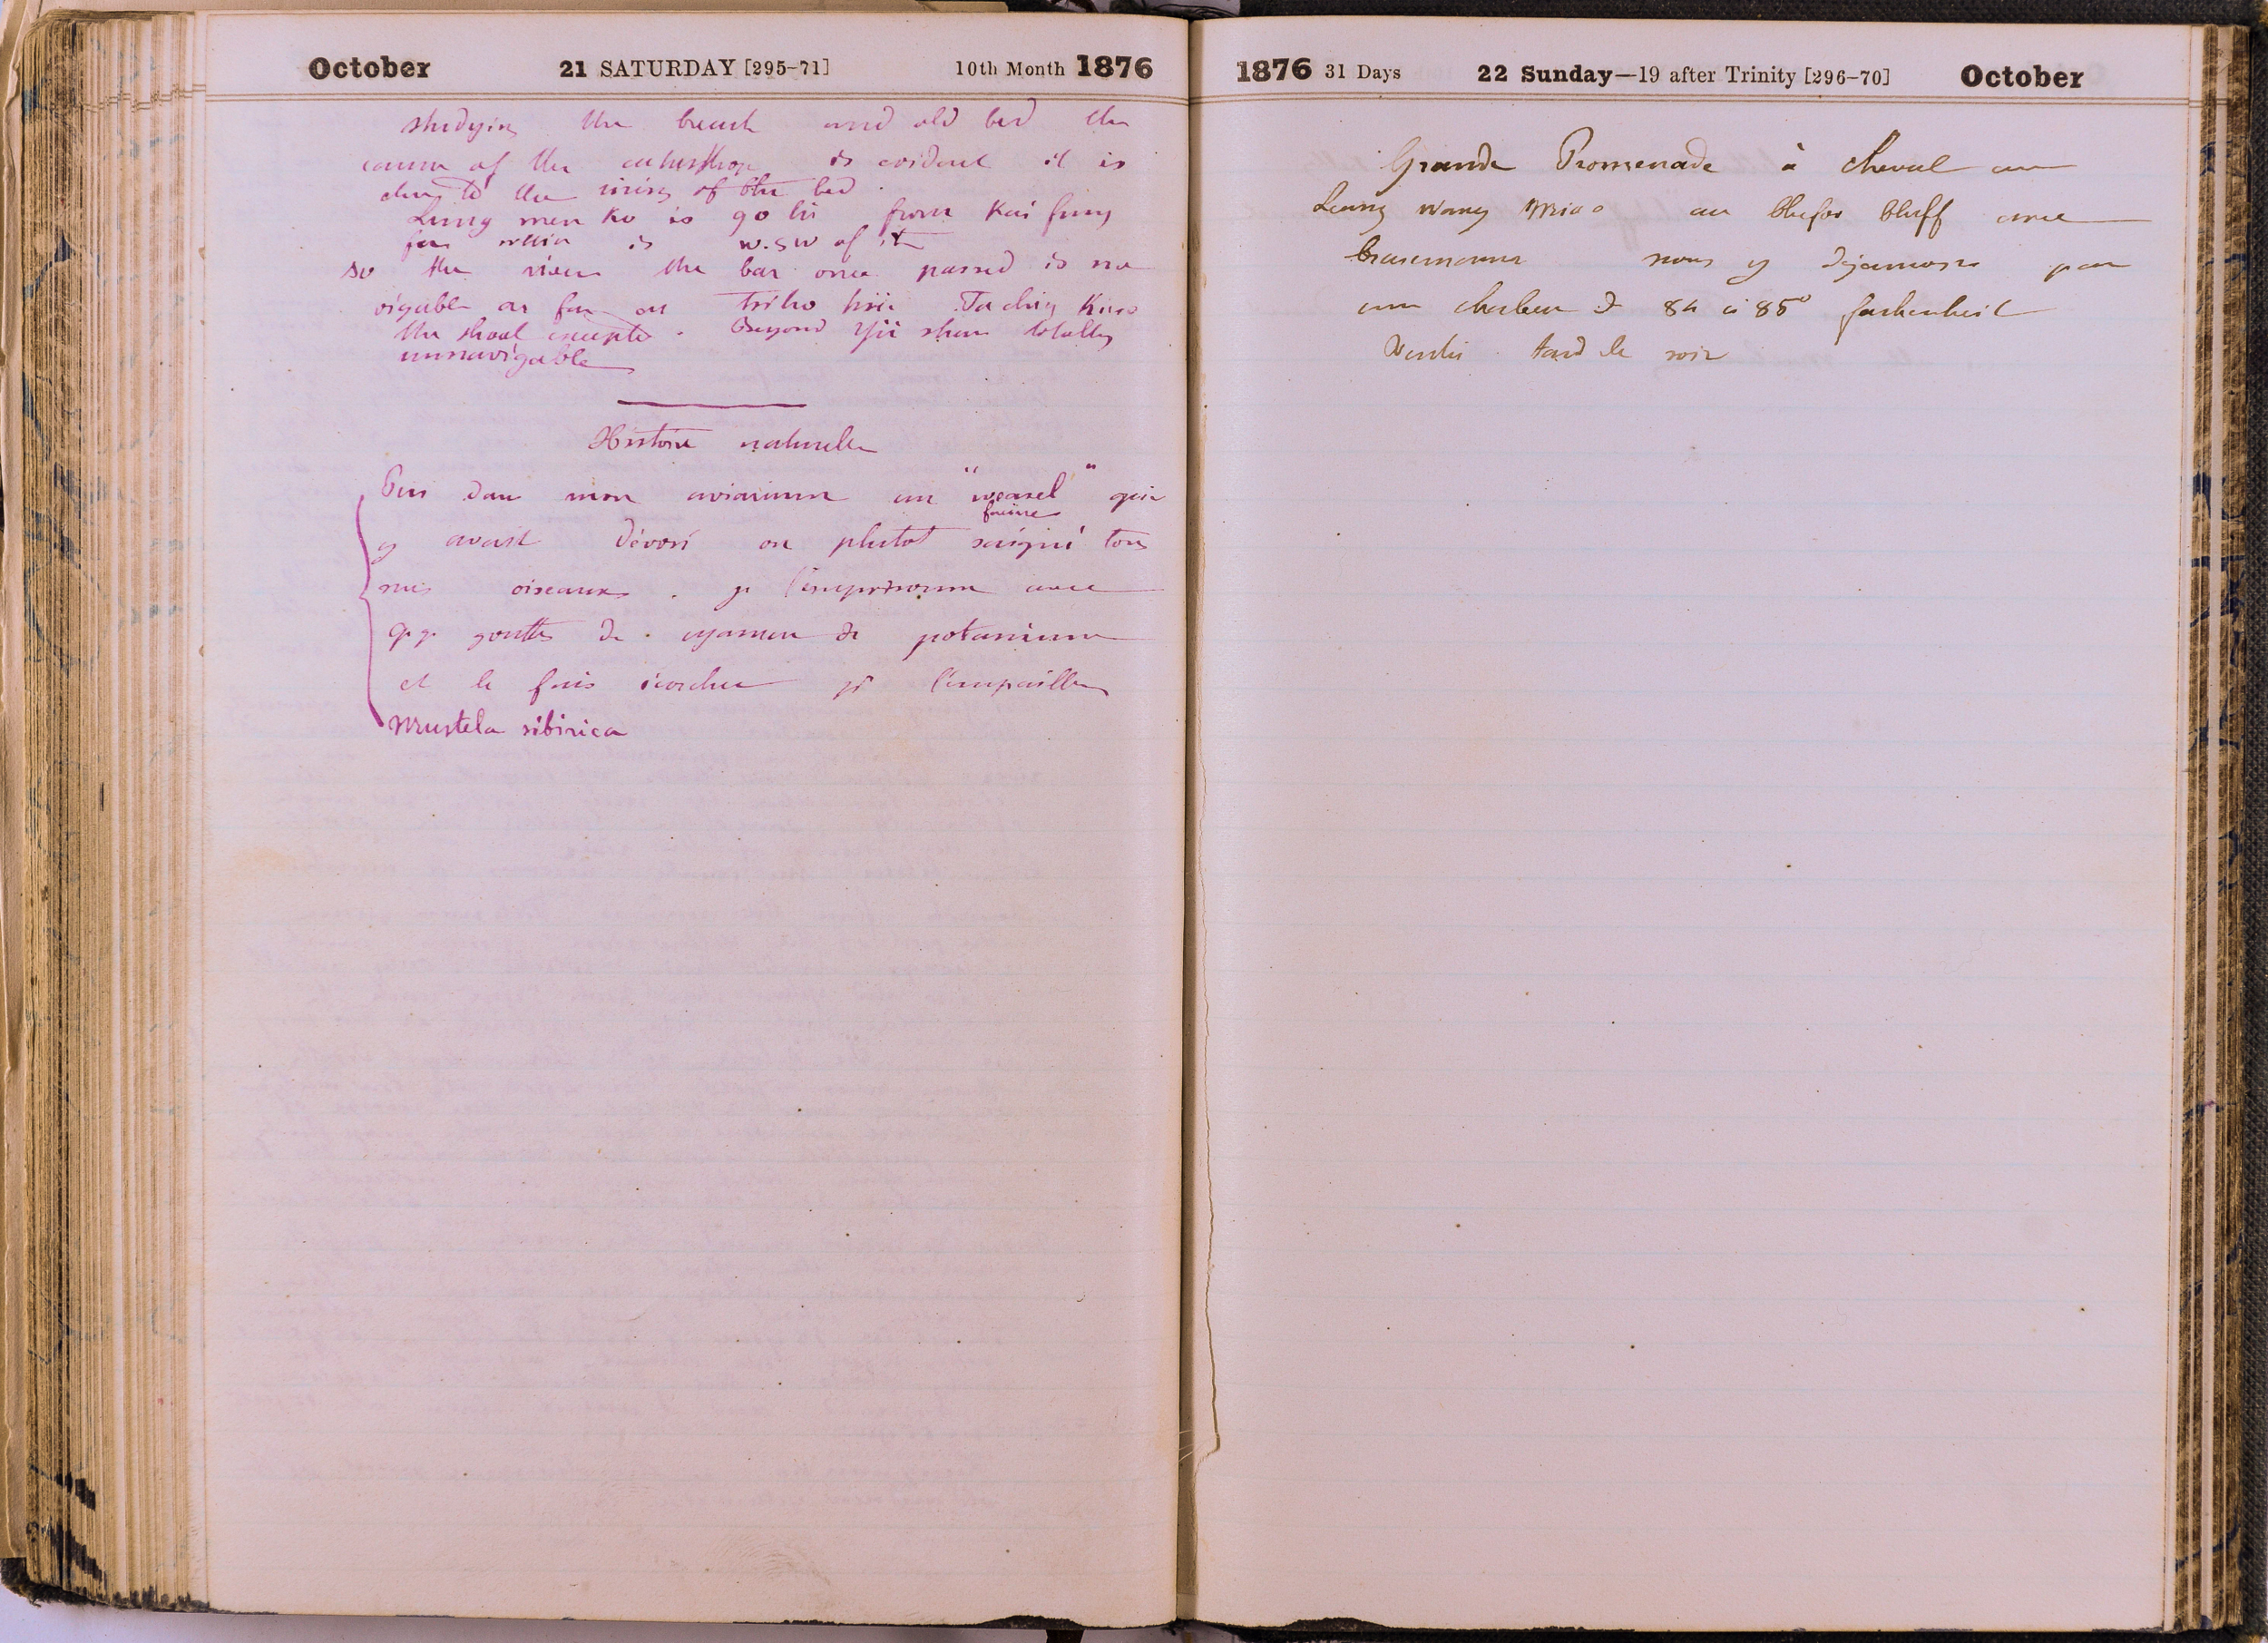 October 21 SATURDAY [295-71] 10th Month 1876
studying the breach and old bed the
cause of the catastrophe is evident it is
due to the rising of the bed.
Lung men Ko is 90 li from Kai fung
fou which is W.SW of it
so the river the bar once passed is na
vigable as far as Tsiho hsie Ta ching Kiao
the shoal excepted. Beyond Yü shan totally
unnavigable
Histoire naturelle
Pris dans mon aviarium un "weasel" qui
fouine
y avait dévoré ou plutot saigné tous
mes oiseaux. je l'emprisonne avec
qq gouttes de cyanure de potassium
et le fais écorcher pr l'empailler
Mustela sibirica
1876 31 Days 22 Sunday—19 after Trinity [296-70] October
Grande Promenade à cheval au
Lung Wang Miao au bluff avec
nous y déjeunons par
une chaleur de 84 à 85° fahrenheit
tard le soir